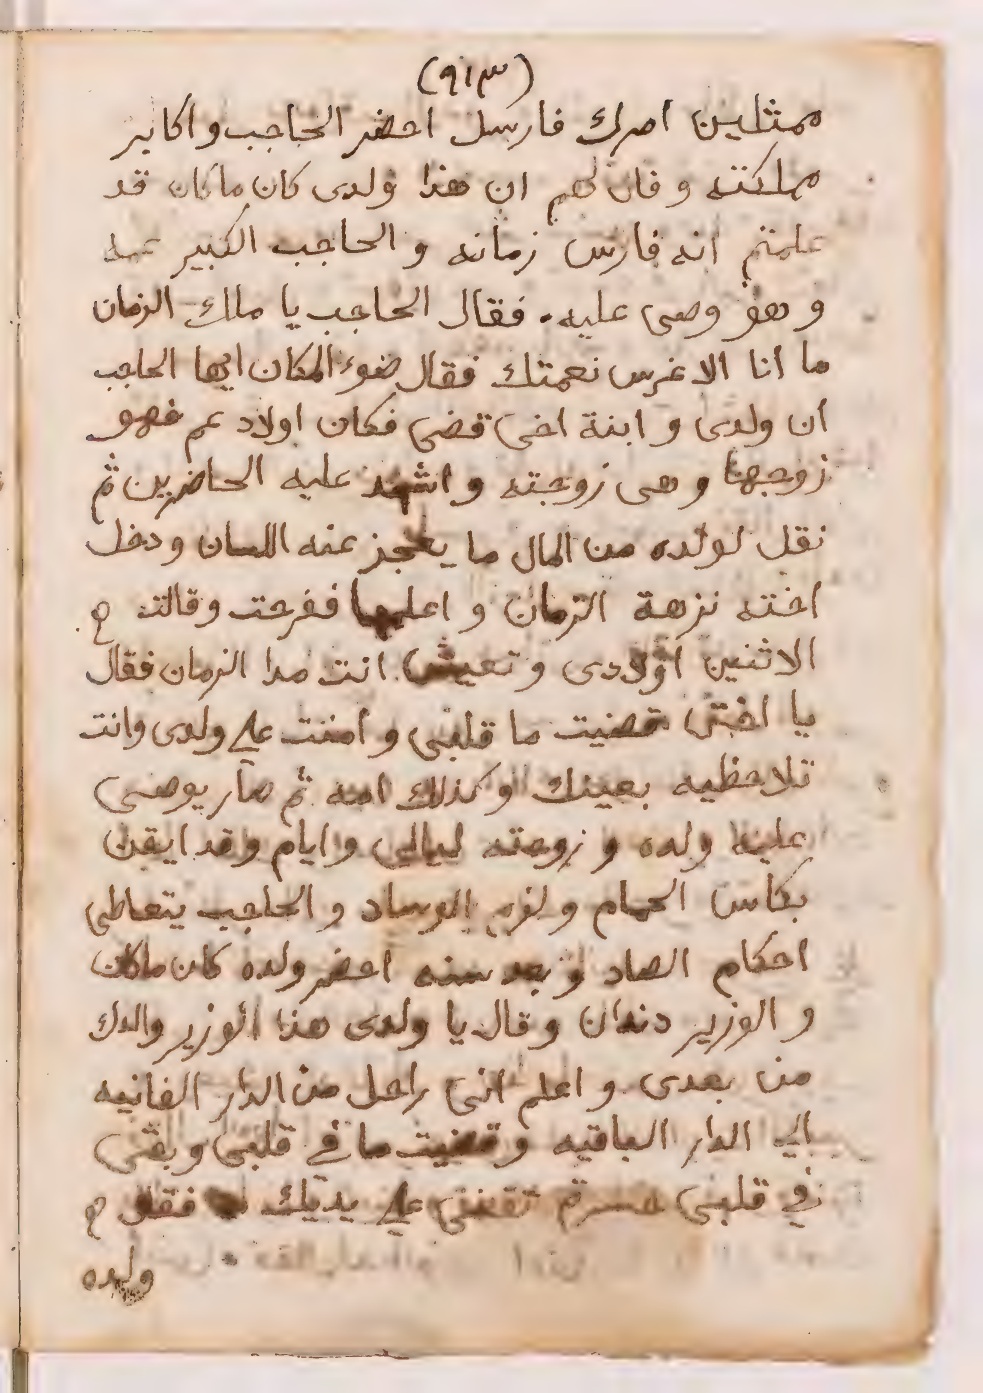 (٩١٣)
ممثلين امرك فارسل احضر الحاجب واكابر
مملكته وقال لهم ان هذا ولدى كان ماكان قد
علمتم انه فارس زمانه و الحاجب الكبير عمه
و هو وصى عليه. فقال الحاجب يا ملك الزمان
ما انا الا غرس نعمتك فقال ضوء المكان ايها الحاجب
ان ولدى و ابنة اخى قضى فكان اولاد عم فهو
زوجها وهى زوجته و اشهد عليه الحاضرين ثم
نقل لولده من المال ما يعجز عنه اللسان ودخل
اخته نزهة الزمان و اعلمها ففرحت وقالت
الاثنين اولادى و تعيش انت مدا الزمان فقال
يا اختى قضيت ما قلبى و امنت على ولدى وانت
تلاحظيه بعينك وكذلك امه ثم صار يوصى
عليه ولده و زوجته ليالى وايام وقد ايقن
بكاس الحمام ولزم الوساد و الحاجب يتعاطى
احكام العباد و بعد سنه احضر ولده كان ماكان
و الوزير دندان وقال يا ولدى هذا الوزير والدك
من بعدى و اعلم انى راحل من الدار الفانيه
الى الدار الباقيه وقضيت ما فى قلبى وبقى
فى قلبى حسرة تقضى على يديك فقال
ولده